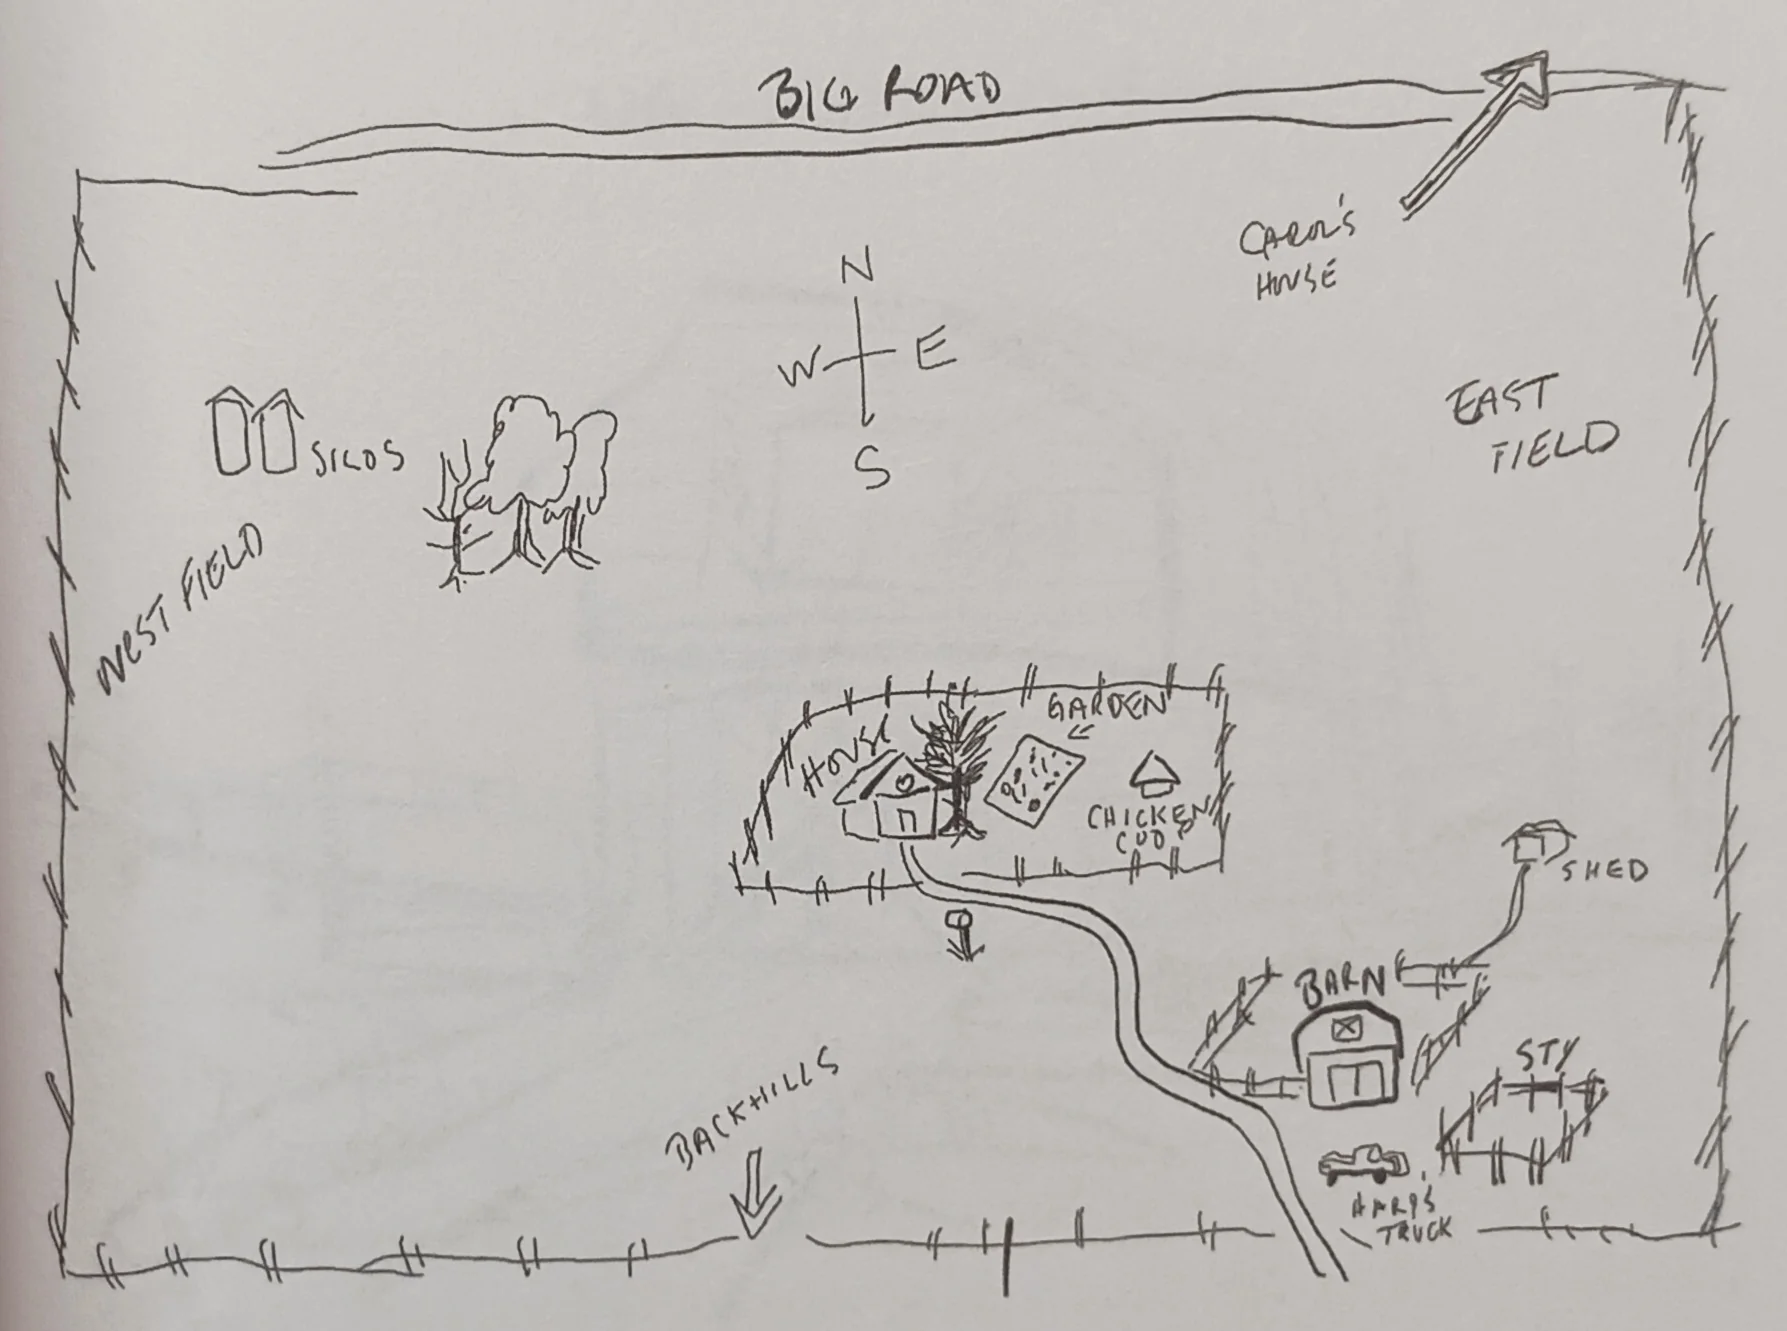 BIG ROAD
CAROL'S
HOUSE
N
W E
S
EAST
FIELD
SILOS
WEST FIELD
GARDEN
HOUSE
CHICKEN
COOP
SHED
BARN
STY
BACKHILLS
TRUCK